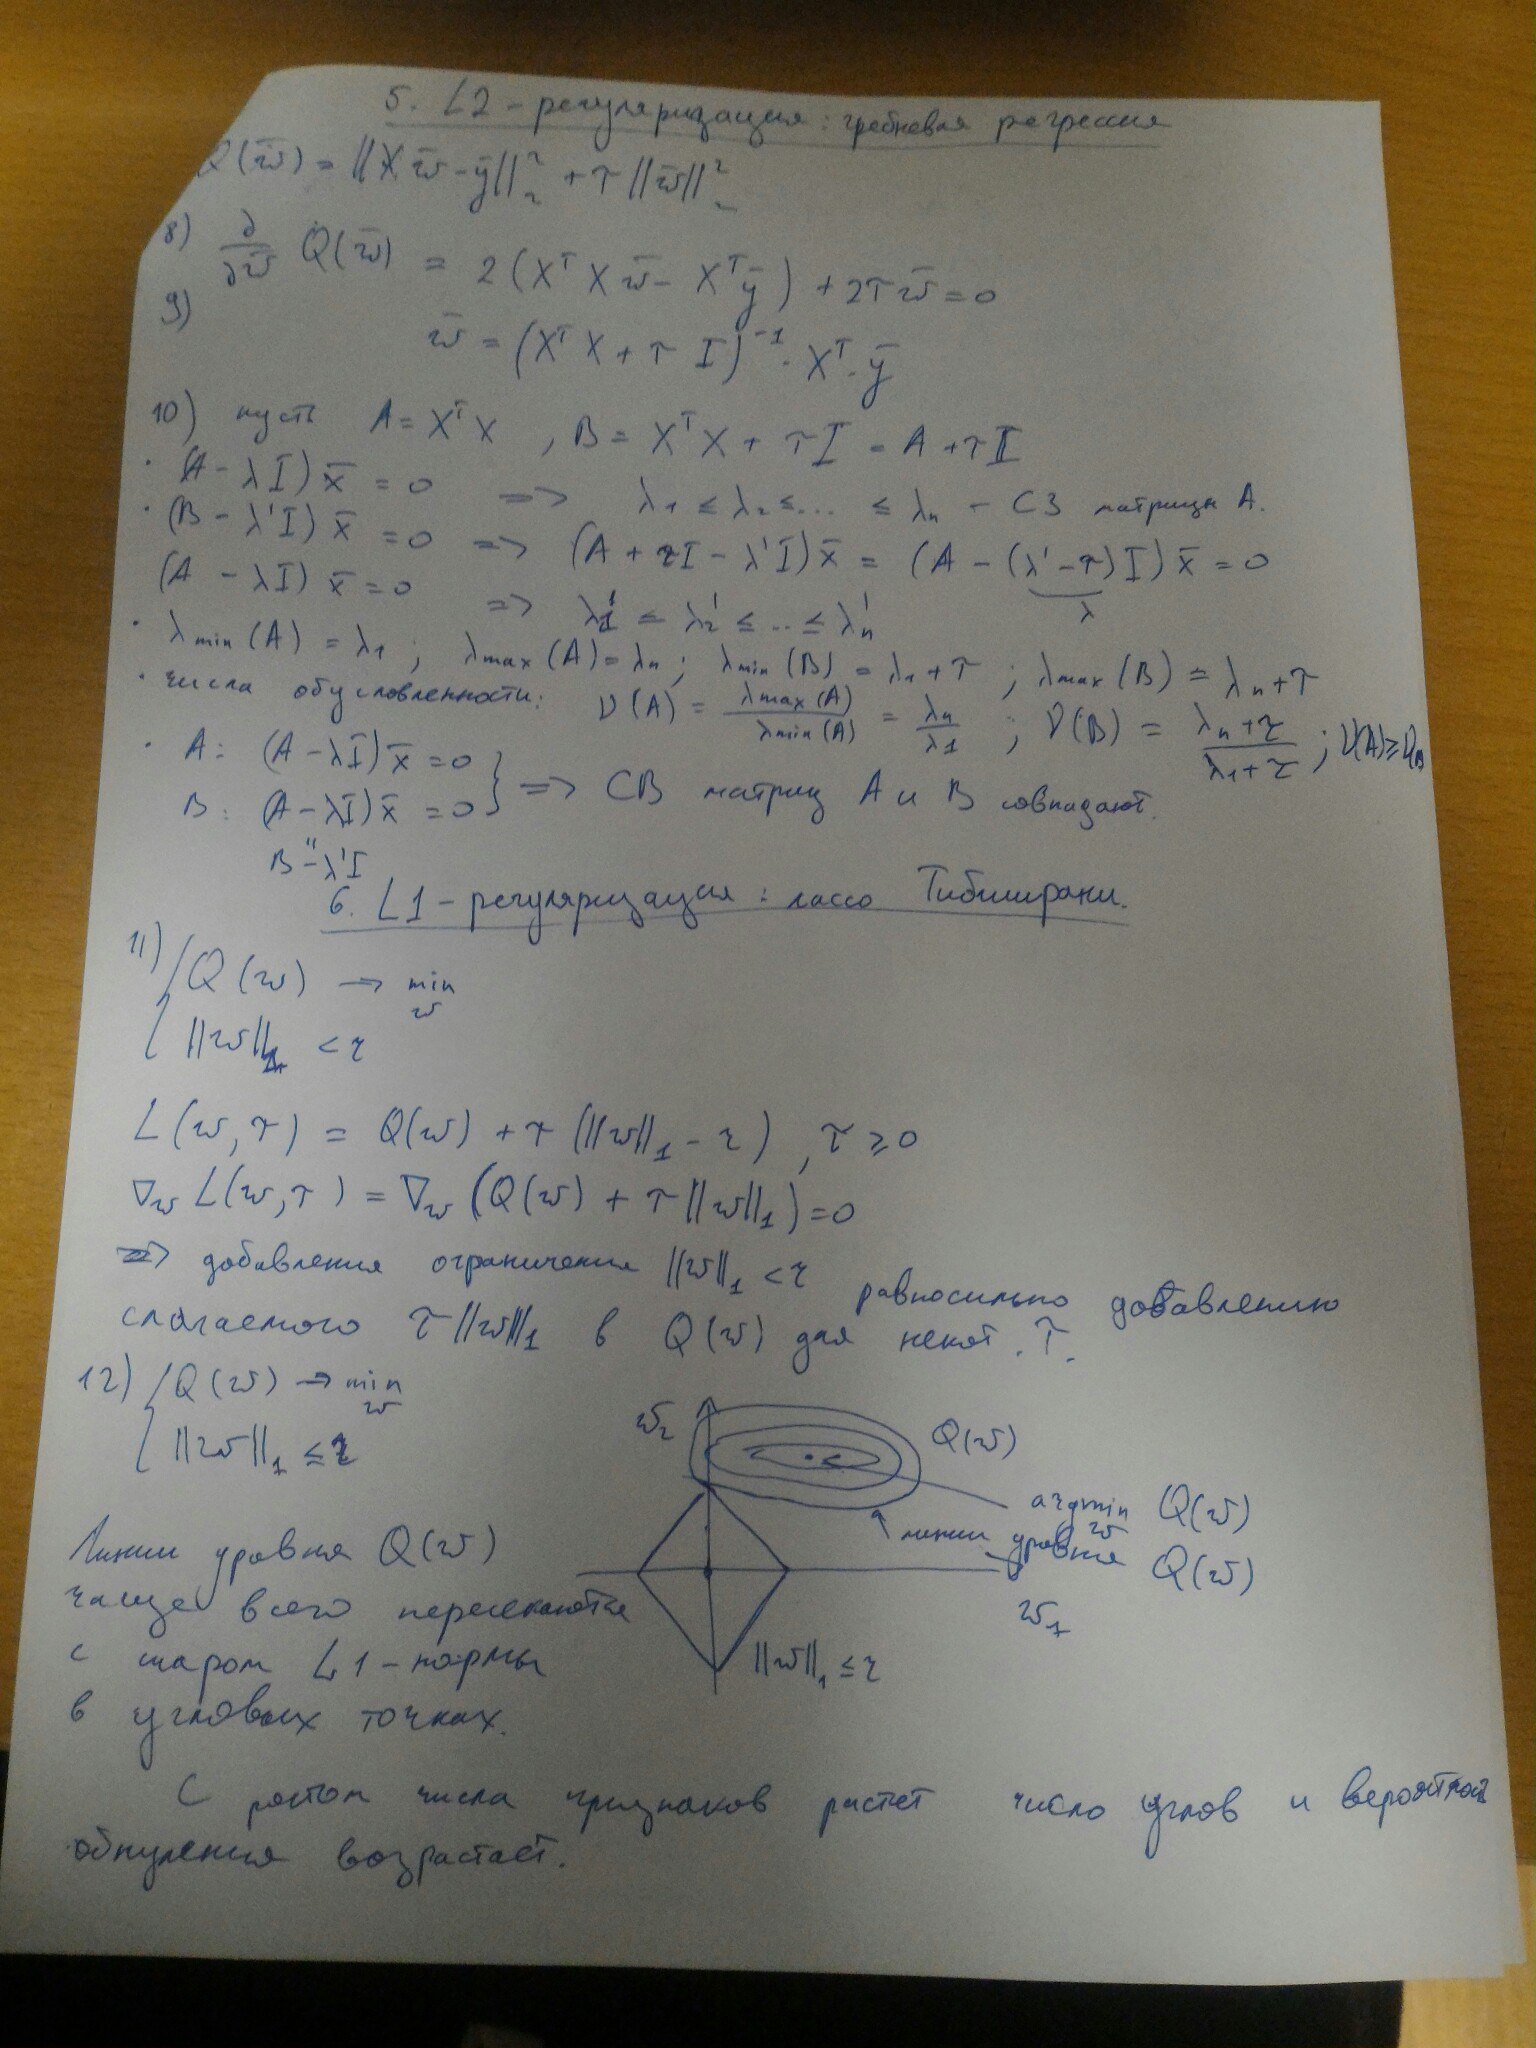 5. L2 - регуляризация: гребневая регрессия
Q(w̄) = ||Xw̄ - ȳ||²₂ + τ||w̄||²₂
8) ∂/∂w̄ Q(w̄) = 2(XᵀXw̄ - Xᵀȳ) + 2τw̄ = 0
9) w̄ = (XᵀX + τI)⁻¹ · Xᵀ · ȳ
10) пусть A = XᵀX , B = XᵀX + τI = A + τI
· (A - λI)x̄ = 0 => λ₁ ≤ λ₂ ≤ ... ≤ λₙ - СЗ матрицы A.
· (B - λ'I)x̄ = 0 => (A + τI - λ'I)x̄ = (A - (λ' - τ)I)x̄ = 0
λ
(A - λI)x̄ = 0 => λ₁' ≤ λ₂' ≤ ... ≤ λₙ'
· λmin(A) = λ₁ ; λmax(A) = λₙ ; λmin(B) = λ₁ + τ ; λmax(B) = λₙ + τ
· числа обусловленности: ν(A) = λmax(A)/λmin(A) = λₙ/λ₁ ; ν(B) = (λₙ + τ)/(λ₁ + τ) ; ν(A) ≥ ν(B)
· A: (A - λI)x̄ = 0
B: (A - λI)x̄ = 0 } => СВ матриц A и B совпадают.
"
B - λ'I
6. L1 - регуляризация: лассо Тибширани.
11) { Q(w) → min w
||w||₁ < τ
L(w, τ) = Q(w) + τ(||w||₁ - τ) , τ ≥ 0
∇w L(w, τ) = ∇w (Q(w) + τ||w||₁) = 0
=> добавления ограничения ||w||₁ < τ равносильно добавлению
слагаемого τ||w||₁ в Q(w) для некот. τ.
12) { Q(w) → min w
||w||₁ ≤ τ
w₂
Q(w)
argmin w Q(w)
линии уровня Q(w)
w₁
||w||₁ ≤ τ
Линии уровня Q(w)
чаще всего пересекаются
с шаром L1 - нормы
в угловых точках.
С ростом числа признаков растет число углов и вероятность
обнуления возрастает.